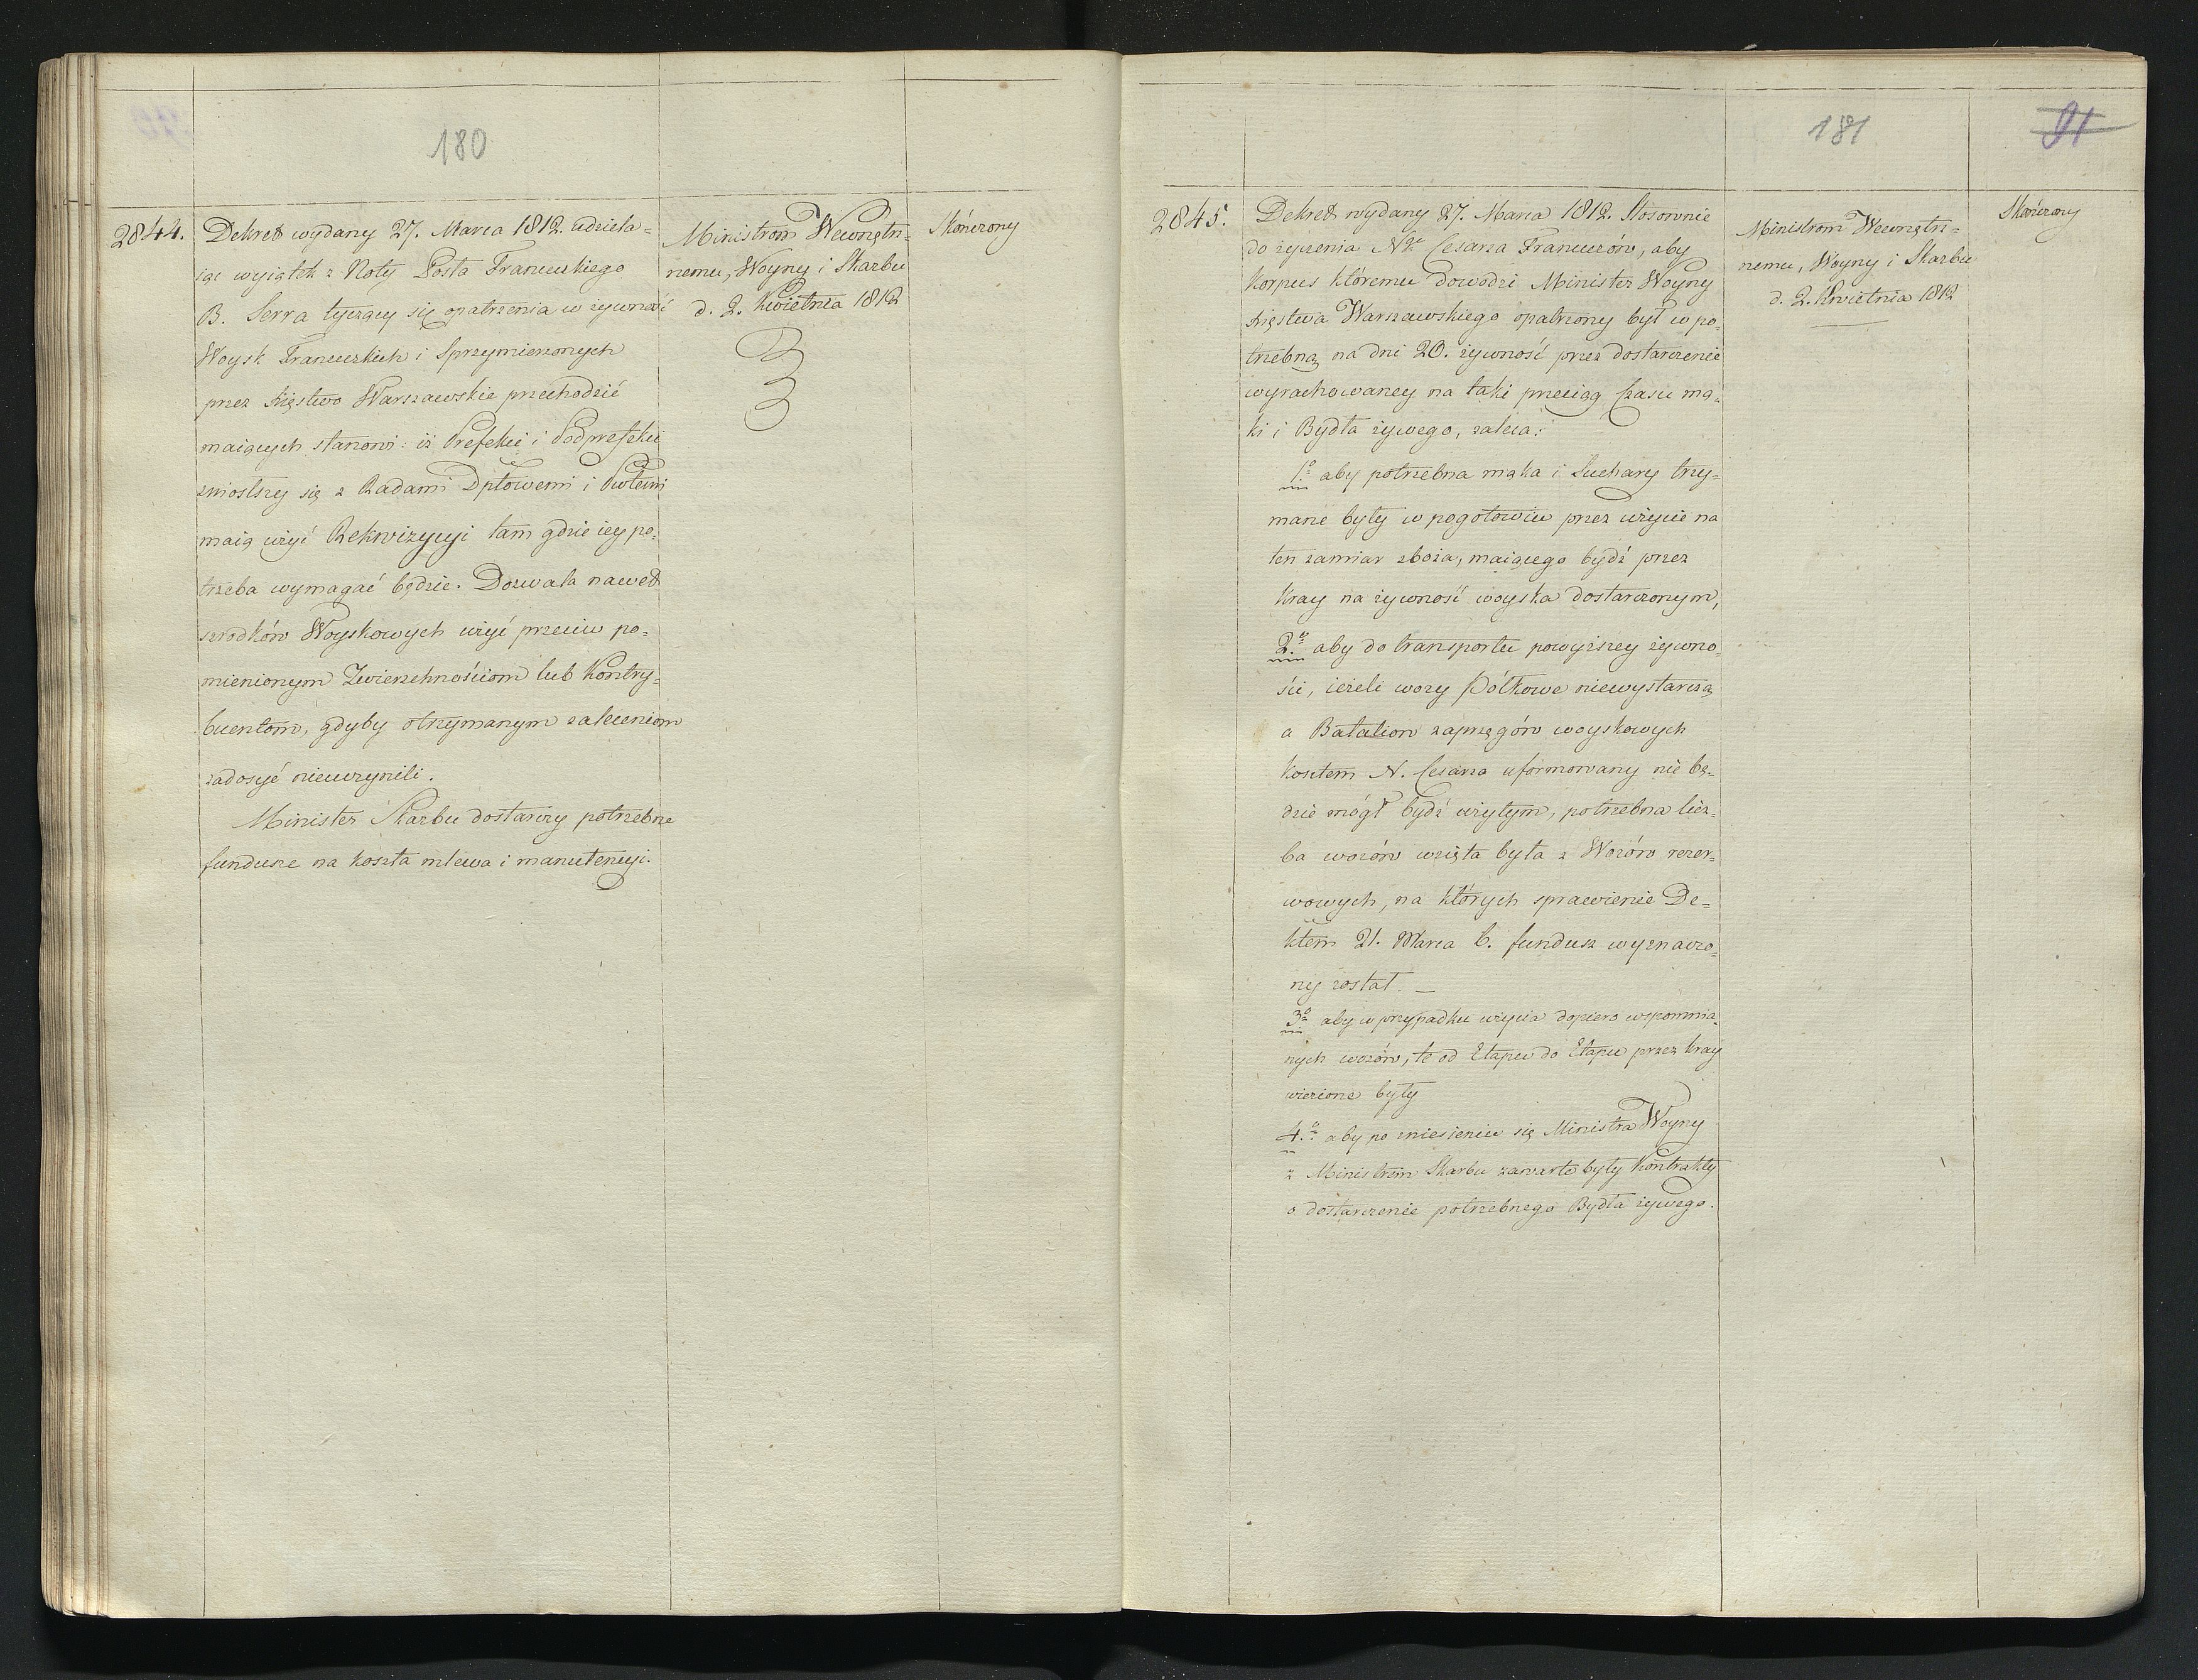 180
2844.
Dekret wydany 27. Marca 1812. udziela=
iąc wyiątek z Noty Posła Francuskiego
B. Serra tyczący się opatrzenia w żywność
Woysk Francuzkich i Sprzymierzonych
przez Xięstwo Warszawskie przechodzić
maiących stanowi: iż Prefekci i Podprefekci
zniosłszy się z Radami Dptowemi i Pwtemi
maią użyć Rekwizycyi tam gdzie iey po=
trzeba wymagać będzie. Dozwala nawet
szrodków Woyskowych użyć przeciw po=
mienionym Zwierzchnościom lub Kontry=
buentom, gdyby otrzymanym zaleceniom
zadosyć nieuczynili.
Minister Skarbu dostarczy potrzebne
fundusze na koszta mlewa i manutencyi.
Ministrom Wewnętrz=
nemu, Woyny i Skarbu
d. 2. Kwietnia 1812
Skończony
181
91
2845.
Dekret wydany 27. Marca 1812. Stósownie
do życzenia Ngo Cesarza Francuzów, aby
Korpus któremu dowodzi Minister Woyny
Xięstwa Warszawskiego opatrzony był w po=
trzebną na dni 20. żywność przez dostarczenie
wyrachowaney na taki przeciąg Czasu mą=
ki i Bydła żywego, zaleca:
1o aby potrzebna mąka i Suchary trzy=
mane były w pogotowiu przez użycie na
ten zamiar zboża, maiącego bydź przez
Kray na żywność woyska dostarczonym,
2o aby do transportu powyższey żywno=
ści, ieżeli wozy Półkowe niewystarczą
a Batalion zaprzęgów woyskowych
kosztem N. Cesarza uformowany nie bę=
dzie mógł bydź użytym, potrzebna licz=
ba wozów wzięta była z Wozów rezer=
wowych, na których sprawienie De=
ktem 21. Marca b. fundusz wyznaczo=
ny został. —
3o aby w przypadku użycia dopiero wspomnia=
nych wozów, te od Etapu do Etapu przez kray
wiezione były
4.o aby po zniesieniu się Ministra Woyny
z Ministrem Skarbu zawarte były Kontrakty
o dostarczenie potrzebnego Bydła żywego.
Ministrom Wewnętrz=
nemu, Woyny i Skarbu
d. 2. Kwietnia 1812
Skończony